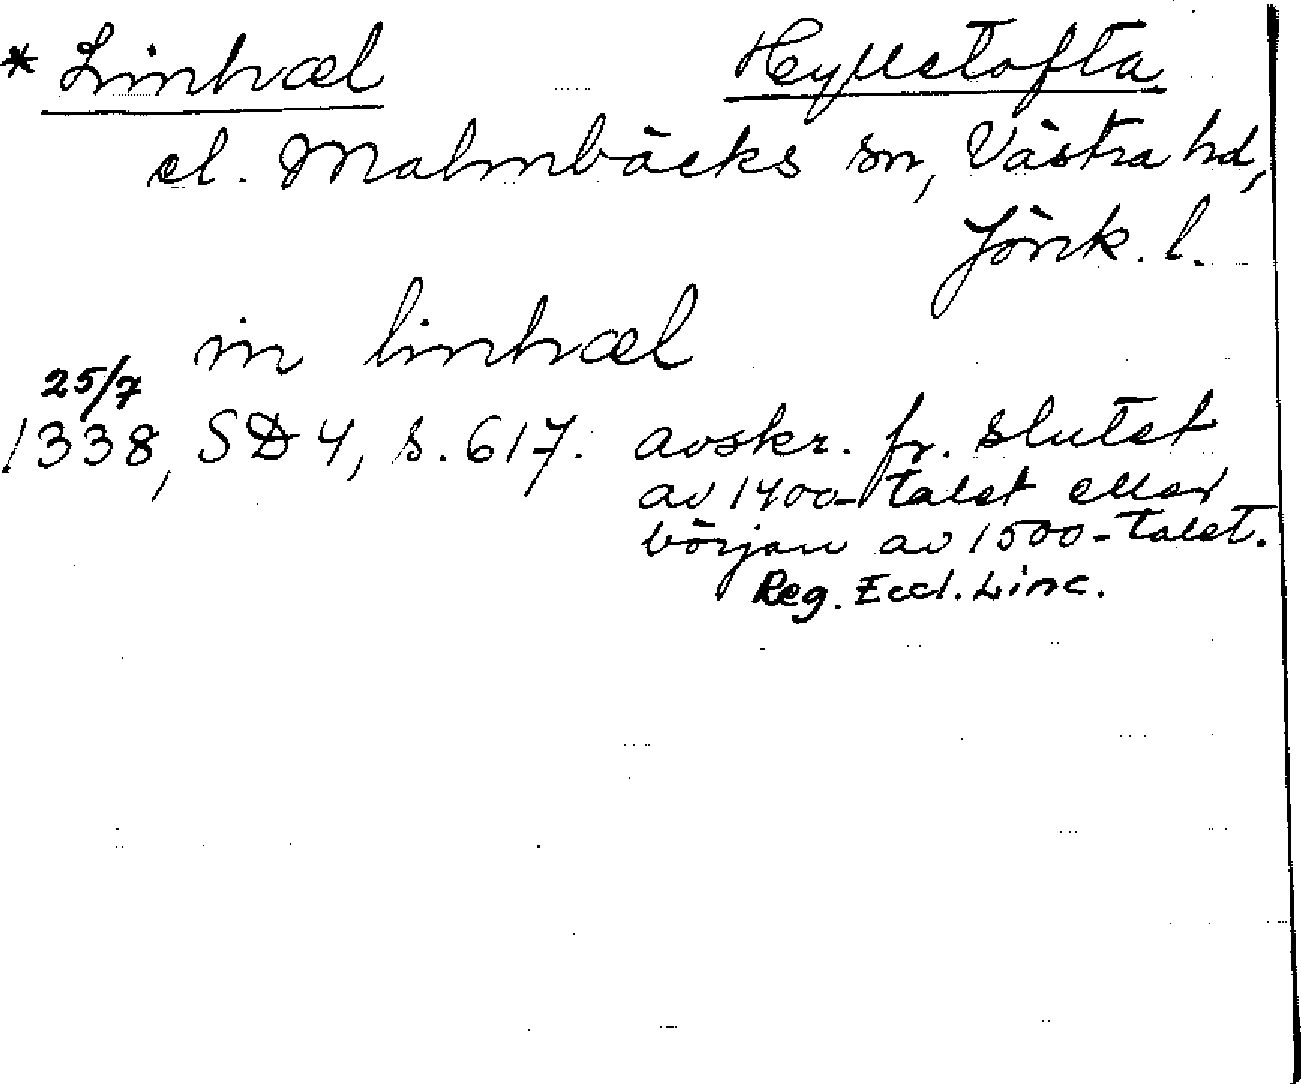 * Linhæl Hyllstofta
el. Malmbäcks sn, Västra hd,
Jönk. l.
in linhæl
25/7
1338, SD 4, s. 617. avskr. fr. slutet
av 1400-talet eller
början av 1500-talet.
Reg. Eccl. Linc.